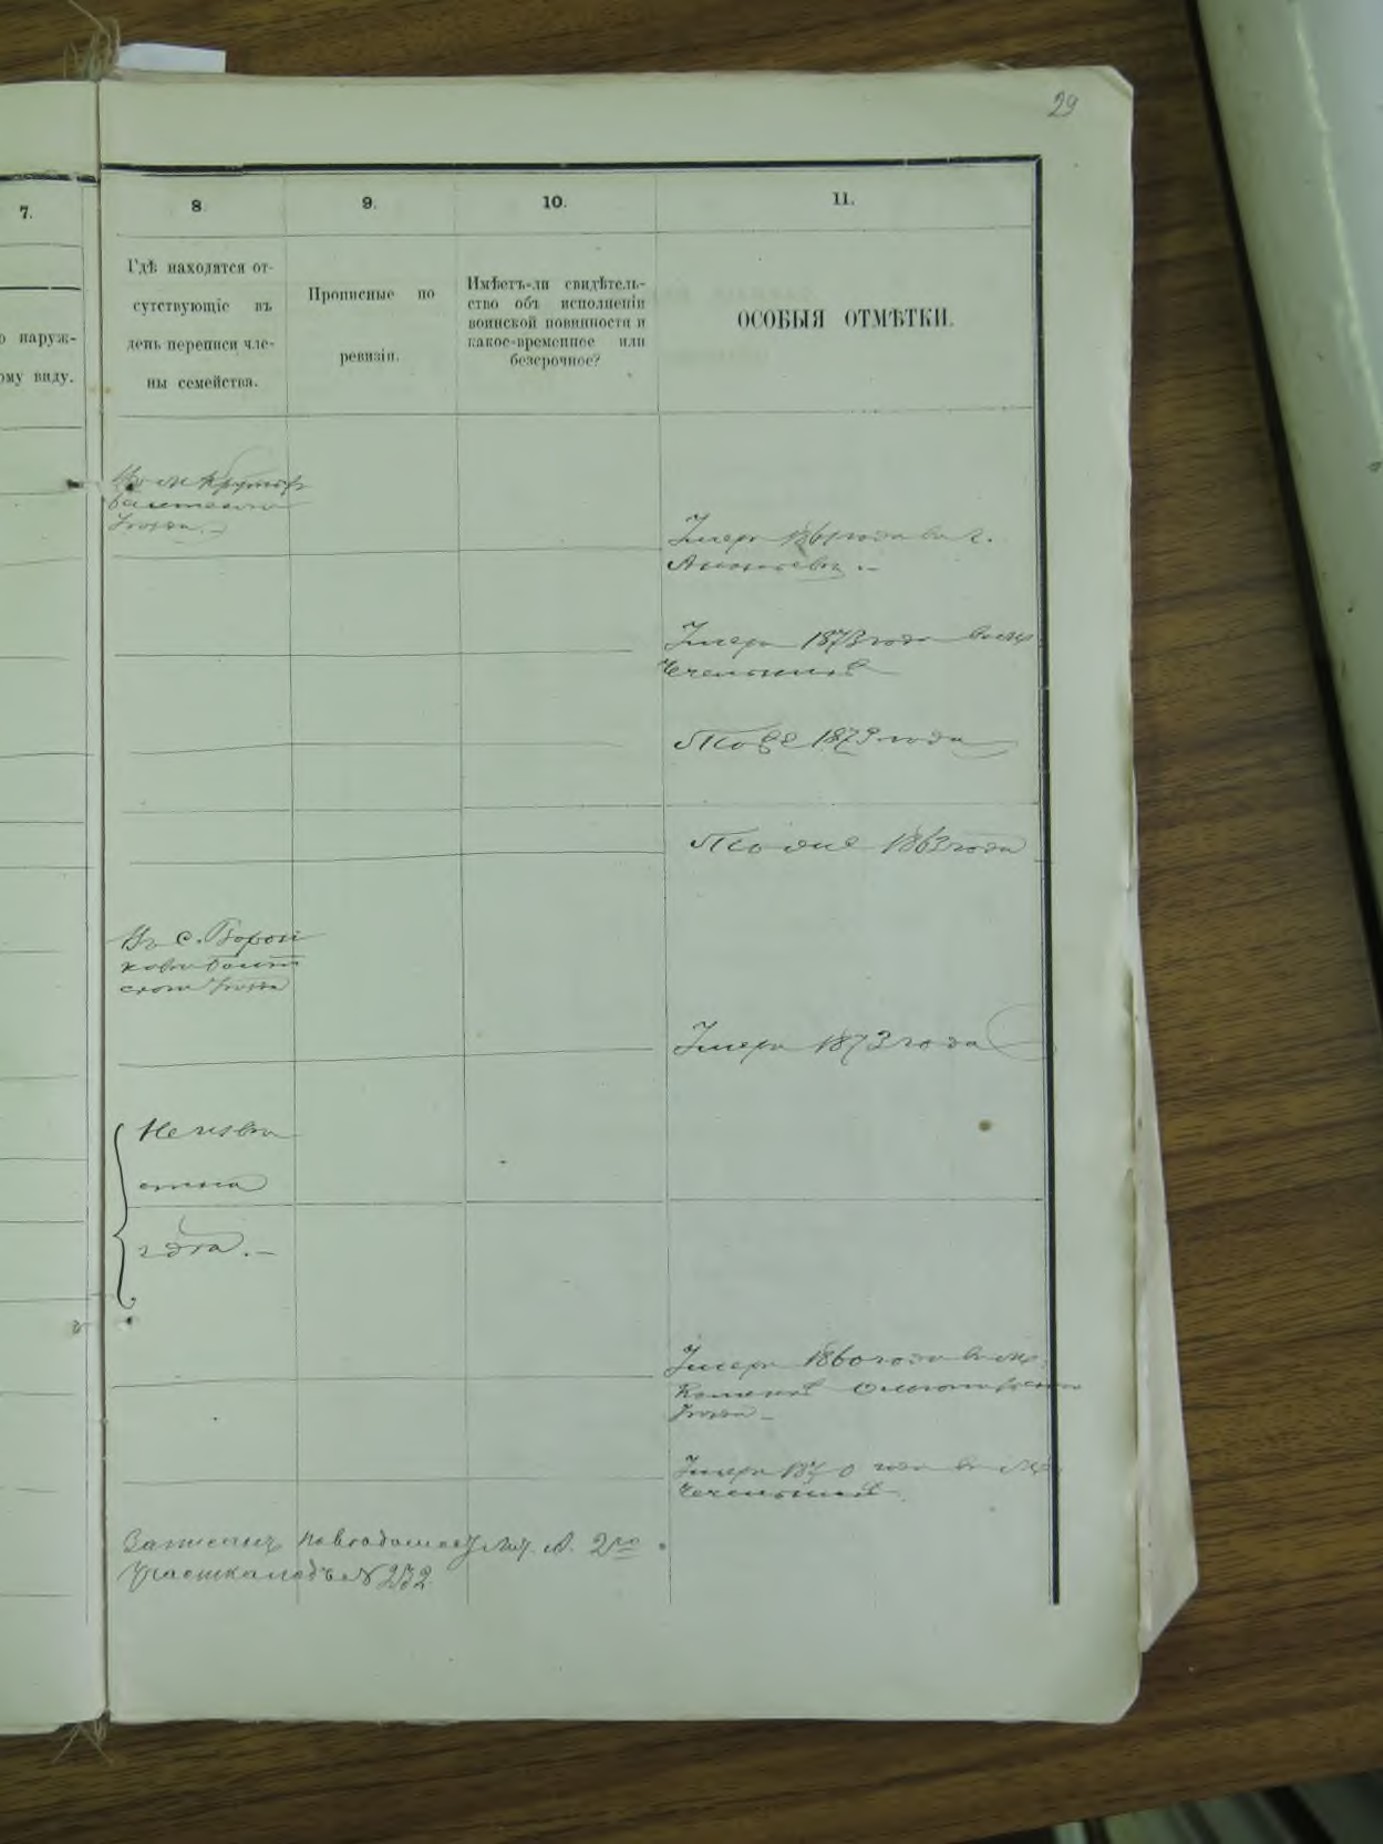 29
7.
8.
9.
10.
11.
о наруж-
ому виду.
Гдѣ находятся от-
сутствующіе въ
день переписи чле-
ны семейства.
Прописные по
ревизіи.
Имѣетъ-ли свидѣтель-
ство объ исполненіи
воинской повинности и
какое-временное или
безсрочное?
ОСОБЫЯ ОТМѢТКИ.
уѣзда.
Умеръ 1861 года въ г.
Ананьевѣ.
Умеръ 1873 года въ м.
Чечельникѣ
Тоже 1879 года
Тоже 1863 года
Въ с.
уѣзда
Умеръ 1873 года
Неизвѣ
стно
гдѣ.
Умеръ 1860 года въ м.
уѣзда
Умеръ 1870 года въ м.
Чечельникѣ
2го
участка подъ № 232